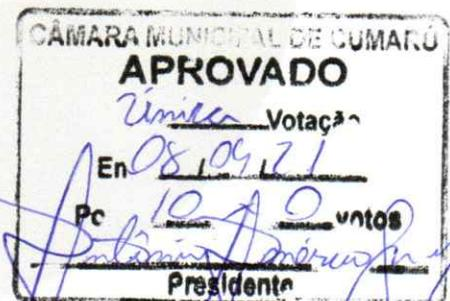 CÂMARA MUNICIPAL DE CUMARÚ
APROVADO
Única Votação
Em 08 / 09 / 21
Po 10 0 votos
Antônio Américo
Presidente